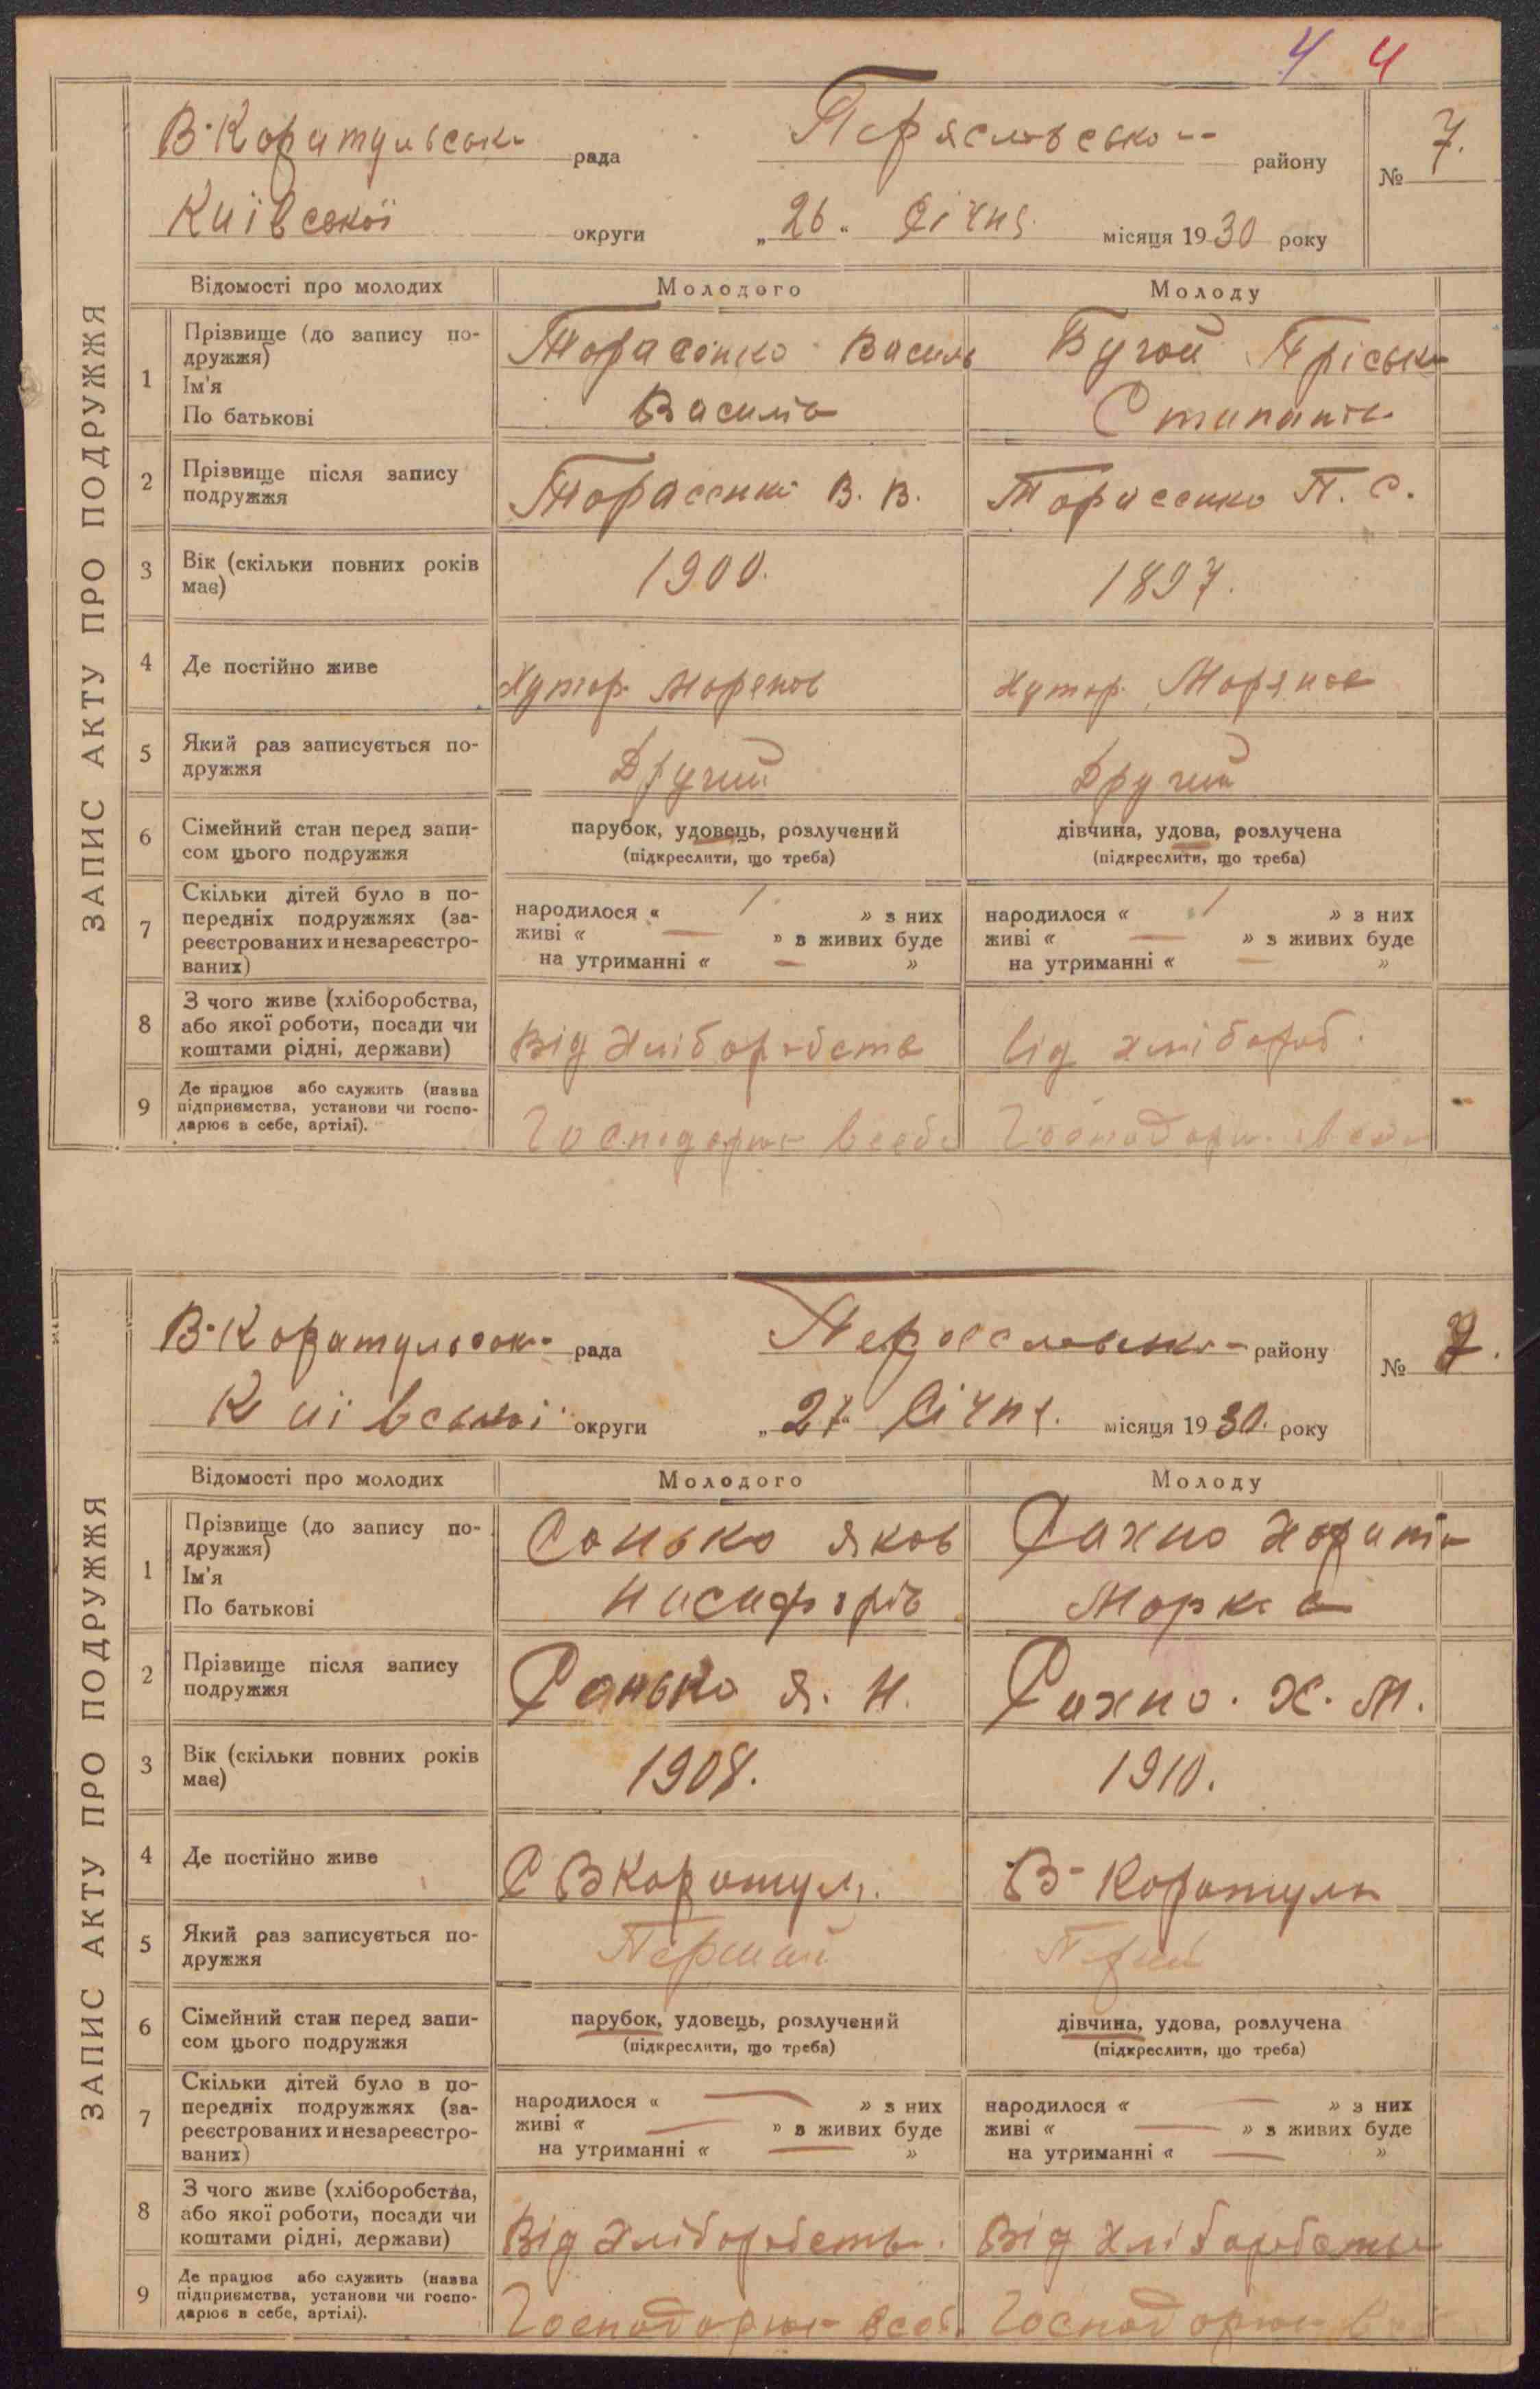 4 4
ЗАПИС АКТУ ПРО ПОДРУЖЖЯ
В-Каратульська рада Переяславсько району № 7.
Київської округи „26“ Січня місяця 1930 року
Відомості про молодих Молодого Молоду
1 Прізвище (до запису подружжя) Ім'я По батькові
Тарасенко Василь Бугай Пріська
Василів Степанів
2 Прізвище після запису подружжя Тарасенко В. В. Тарасенко П. С.
3 Вік (скільки повних років має) 1900. 1897.
4 Де постійно живе Хутор Хутор
5 Який раз записується подружжя Другий Другий
6 Сімейний стан перед записом цього подружжя парубок, удовець, розлучений дівчина, удова, розлучена
(підкреслити, що треба) (підкреслити, що треба)
7 Скільки дітей було в попередніх подружжях (зареєстрованих и незареєстрованих)
народилося « 1 » з них народилося « 1 » з них
живі « — » в живих буде живі « — » з живих буде
на утриманні « — » на утриманні « — »
8 З чого живе (хліборобства, або якої роботи, посади чи коштами рідні, держави) Від хліборобства від хлібороб.
9 Де працює або служить (назва підприємства, установи чи господарює в себе, артілі). Господарює всебе Господарює всебе
ЗАПИС АКТУ ПРО ПОДРУЖЖЯ
В-Каратульська рада Переяславсько району № 7.
Київської округи „27“ Січня місяця 1930. року
Відомості про молодих Молодого Молоду
1 Прізвище (до запису подружжя) Ім'я По батькові
Санько Яков Сахно
Нисифорів Марків
2 Прізвище після запису подружжя Санько Я. Н. Сахно. Х. М.
3 Вік (скільки повних років має) 1908. 1910.
4 Де постійно живе С ВКаратул. В-Каратуля
5 Який раз записується подружжя Перший
6 Сімейний стан перед записом цього подружжя парубок, удовець, розлучений дівчина, удова, розлучена
(підкреслити, що треба) (підкреслити, що треба)
7 Скільки дітей було в попередніх подружжях (зареєстрованих и незареєстрованих)
народилося « — » з них народилося « — » з них
живі « — » в живих буде живі « — » з живих буде
на утриманні « — » на утриманні « — »
8 З чого живе (хліборобства, або якої роботи, посади чи коштами рідні, держави) Від хліборобства. Від хліборобства
9 Де працює або служить (назва підприємства, установи чи господарює в себе, артілі). Господарює всеб. Господарює